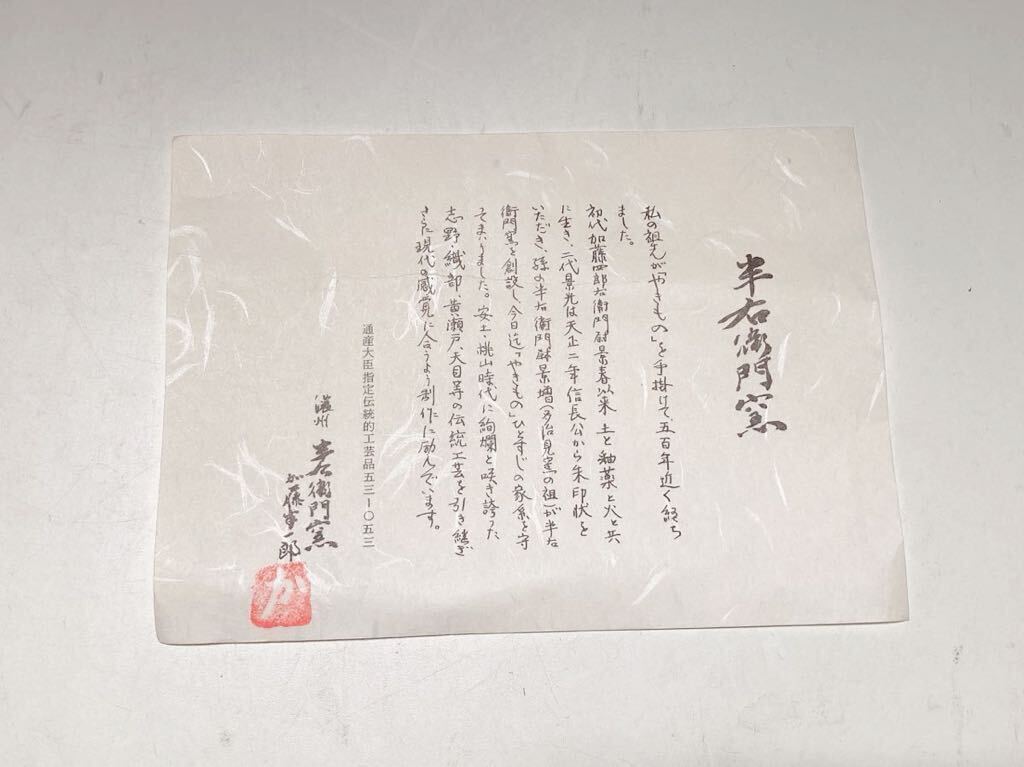 半右衛門窯
私の祖先が「やきもの」を手掛けて、五百年近く経ち
ました。
初代加藤四郎右衛門尉景春以来 土と釉薬と火と共
に生き、二代景光は天正二年信長公から朱印状を
いただき、孫の半右衛門尉景増(多治見窯の祖)が半右
衛門窯を創設し、今日迄「やきもの」ひとすじの家系を守
ってまいりました。安土・桃山時代に絢爛と咲き誇った
志野・織部 黄瀬戸、天目等の伝統工芸を引き継ぎ
さらに現代の感覚に合うよう制作に励んでいます。
通産大臣指定伝統的工芸品五三-〇五三
濃州 半右衛門窯
加藤 一郎
か